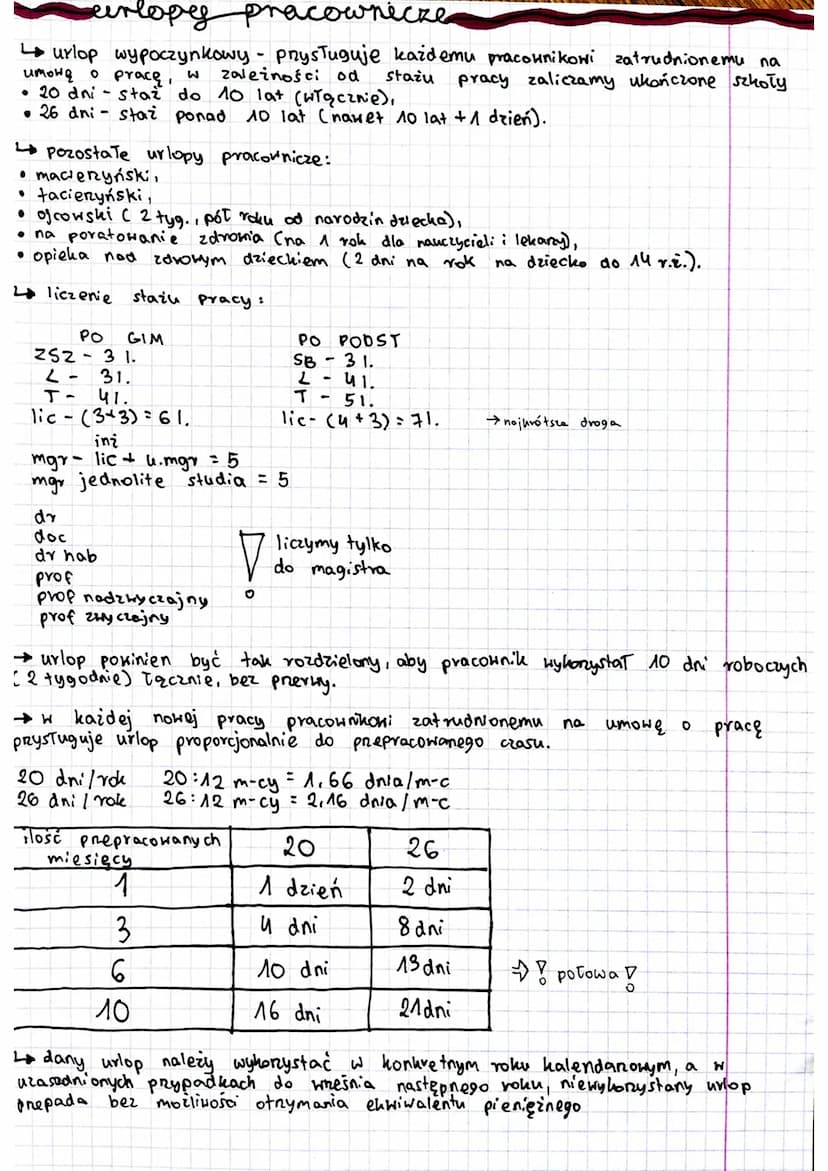 urlopy pracownicze
↳ urlop wypoczynkowy - przysługuje każdemu pracownikowi zatrudnionemu na
umowę o pracę, w zależności od stażu pracy zaliczamy ukończone szkoły
• 20 dni - staż do 10 lat (włącznie),
• 26 dni - staż ponad 10 lat (nawet 10 lat + 1 dzień).
↳ pozostałe urlopy pracownicze:
• macierzyński,
• tacierzyński,
• ojcowski (2 tyg., pół roku od narodzin dziecka),
• na poratowanie zdrowia (na 1 rok dla nauczycieli i lekarzy),
• opieka nad zdrowym dzieckiem (2 dni na rok na dziecko do 14 r.ż.).
↳ liczenie stażu pracy:
PO GIM
ZSZ - 3 l.
L - 3 l.
T - 4 l.
lic - (3+3) = 6 l.
inż
PO PODST
SB - 3 l.
L - 4 l.
T - 5 l.
lic - (4+3) = 7 l. → najkrótsza droga
mgr - lic + u.mgr = 5
mgr jednolite studia = 5
dr
doc
dr hab
prof
prof nadzwyczajny
prof zwyczajny
! liczymy tylko
do magistra
→ urlop powinien być tak rozdzielony, aby pracownik wykorzystał 10 dni roboczych
(2 tygodnie) łącznie, bez przerwy.
→ w każdej nowej pracy pracownikowi zatrudnionemu na umowę o pracę
przysługuje urlop proporcjonalnie do przepracowanego czasu.
20 dni/rok 20:12 m-cy = 1,66 dnia/m-c
26 dni/rok 26:12 m-cy = 2,16 dnia/m-c
ilość przepracowanych
miesięcy 20 26
1 1 dzień 2 dni
3 4 dni 8 dni
6 10 dni 13 dni ⇒ ! połowa !
10 16 dni 21 dni
↳ dany urlop należy wykorzystać w konkretnym roku kalendarzowym, a w
uzasadnionych przypadkach do września następnego roku, niewykorzystany urlop
przepada bez możliwości otrzymania ekwiwalentu pieniężnego